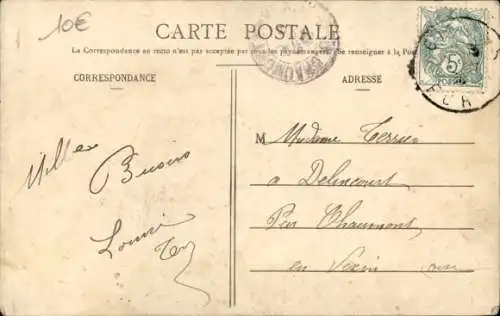 10€
CARTE POSTALE
La Correspondance en recto n'est pas acceptée par tous les pays étrangers. Se renseigner à la Poste
CORRESPONDANCE
ADRESSE
5
Mille
Baisers
Louise
M Madame
a Delincourt
Par Chaumont
en Vexin